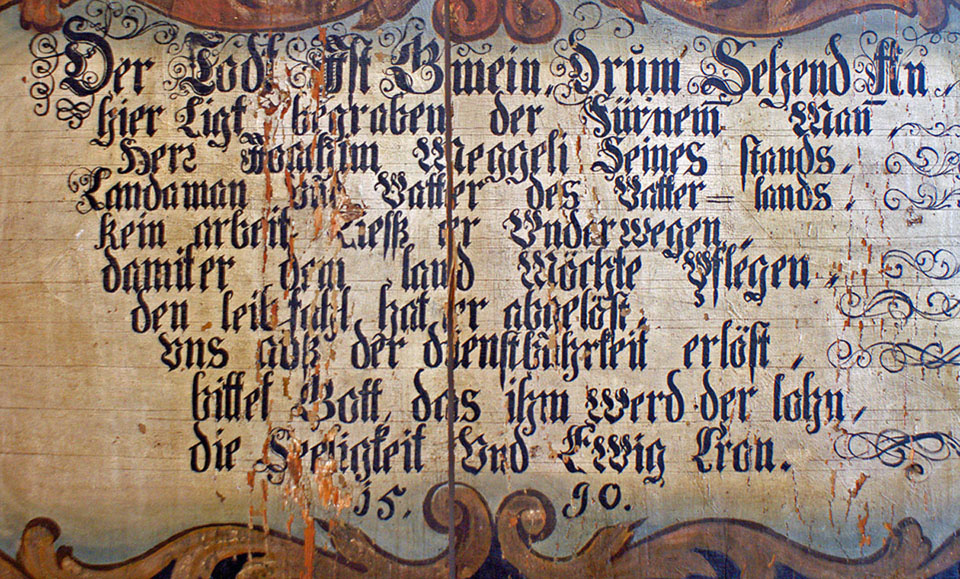 Der Todt Ist Gmein, Drum Sehend An,
hier Ligt begraben der Fürnem̄ Man̄
Herr Joachim Meggeli Seines stands,
Landaman Und Vatter des Vatter=lands,
kein arbeit Liess er Underwegen,
damit er dem land Möchte Pflegen,
den leibfahl hat er abgelöst,
Uns auß der dienstbahrkeit erlöst,
bittet Gott, das ihm Werd der lohn,
die Seeligkeit Und EWig Cron.
15. 90.